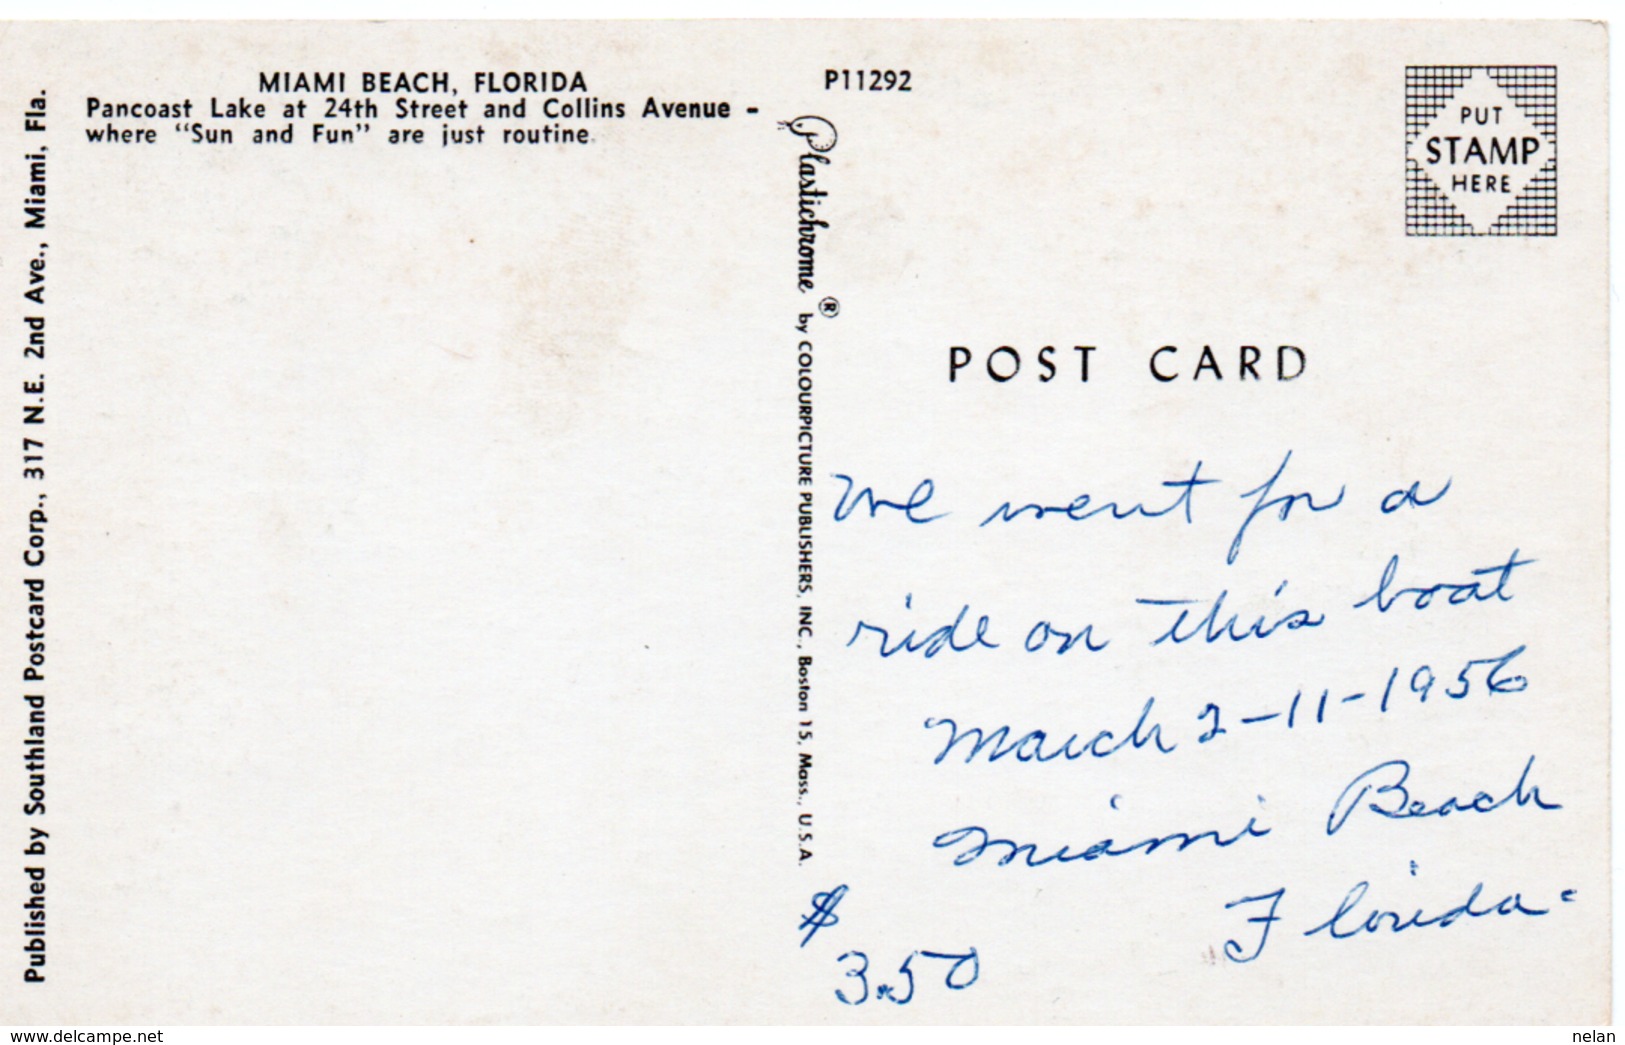 MIAMI BEACH, FLORIDA
Pancoast Lake at 24th Street and Collins Avenue -
where "Sun and Fun" are just routine.
P11292
PUT
STAMP
HERE
Published by Southland Postcard Corp., 317 N.E. 2nd Ave., Miami, Fla.
Plastichrome ® by COLOURPICTURE PUBLISHERS, INC., Boston 15, Mass., U.S.A.
POST CARD
We went for a
ride on this boat
March 2-11-1956
Miami Beach
Florida-
$
3.50
www.delcampe.net
nelan